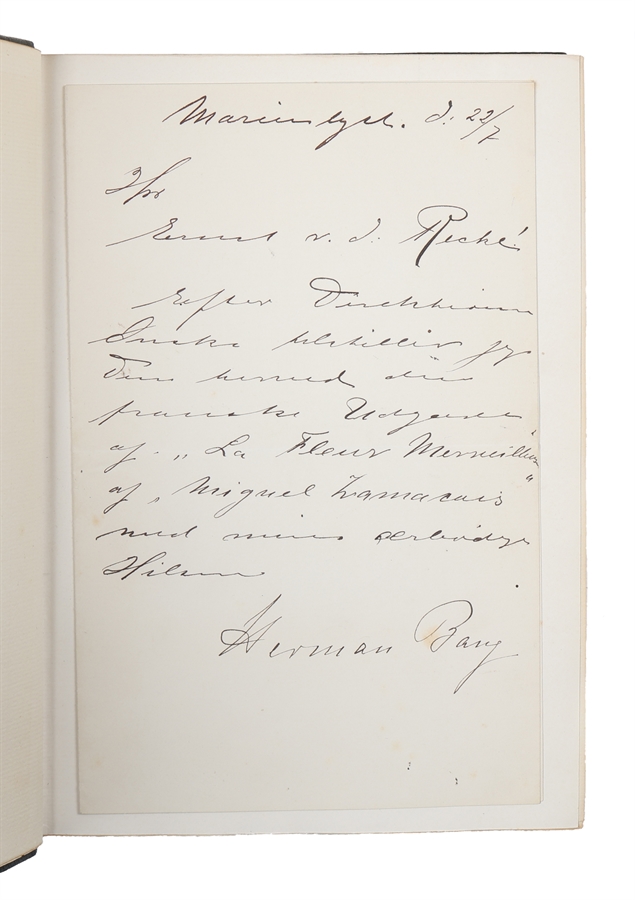 Marienlyst. d: 22/7
Hr
Ernst v. d. Recke.
Efter Direktionens
Ønske tilstiller jeg
Dem herved den
franske Udgave
af „La Fleur Merveilleuse“
af „Miguel Zamacois“
med min ærbødige
Hilsen
Herman Bang